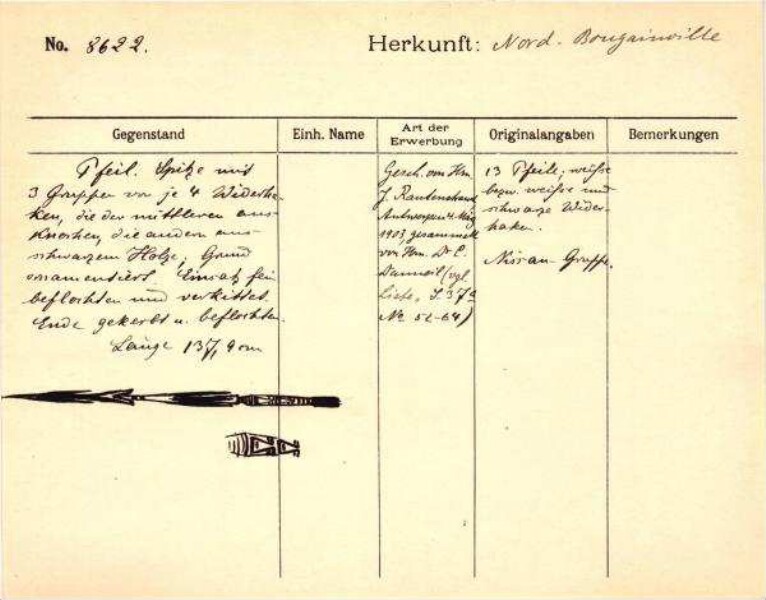 No. 8622.
Herkunft: Nord. Bougainville
Gegenstand
Einh. Name
Art der Erwerbung
Originalangaben
Bemerkungen
Pfeil. Spitze mit
3 Gruppen von je 4 Widerha-
ken, die der mittleren aus
Knochen, die andern aus
schwarzem Holze; Grund
ornamentiert. Einsatz fein
beflochten und verkittet.
Ende gekerbt u. beflochten.
Länge 137,9 cm
Gesch. von Hrn.
J. Rautenstrauch
Antwerpen
1903, gesammelt
von Hrn. Dr. E.
Danneil (vgl.
Liste, S. 37
No 52-64)
13 Pfeile; weiße
bezw. weiße und
schwarze Wider-
haken.
Nissan-Gruppe.